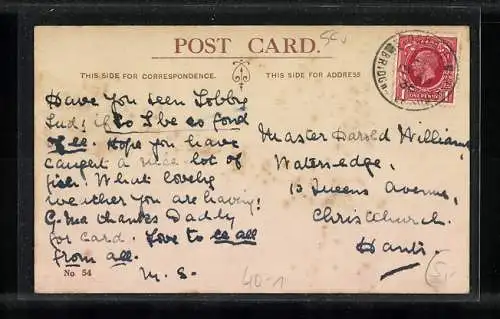 POST CARD.
THIS SIDE FOR CORRESPONDENCE.
THIS SIDE FOR ADDRESS
ONE PENNY
BRIDGE
Have you seen Bobbie
Lud; if so I be so fond
of ee. Hope you have
caught a nice lot of
fish! What lovely
weather you are having!
G.Ma thanks Daddy
for card. Love to ee all
from all.
M. S.
No 54
Master Harold Williams,
Waters-edge,
13 Queens Avenue,
Christchurch.
Hants.
40-1
5/-